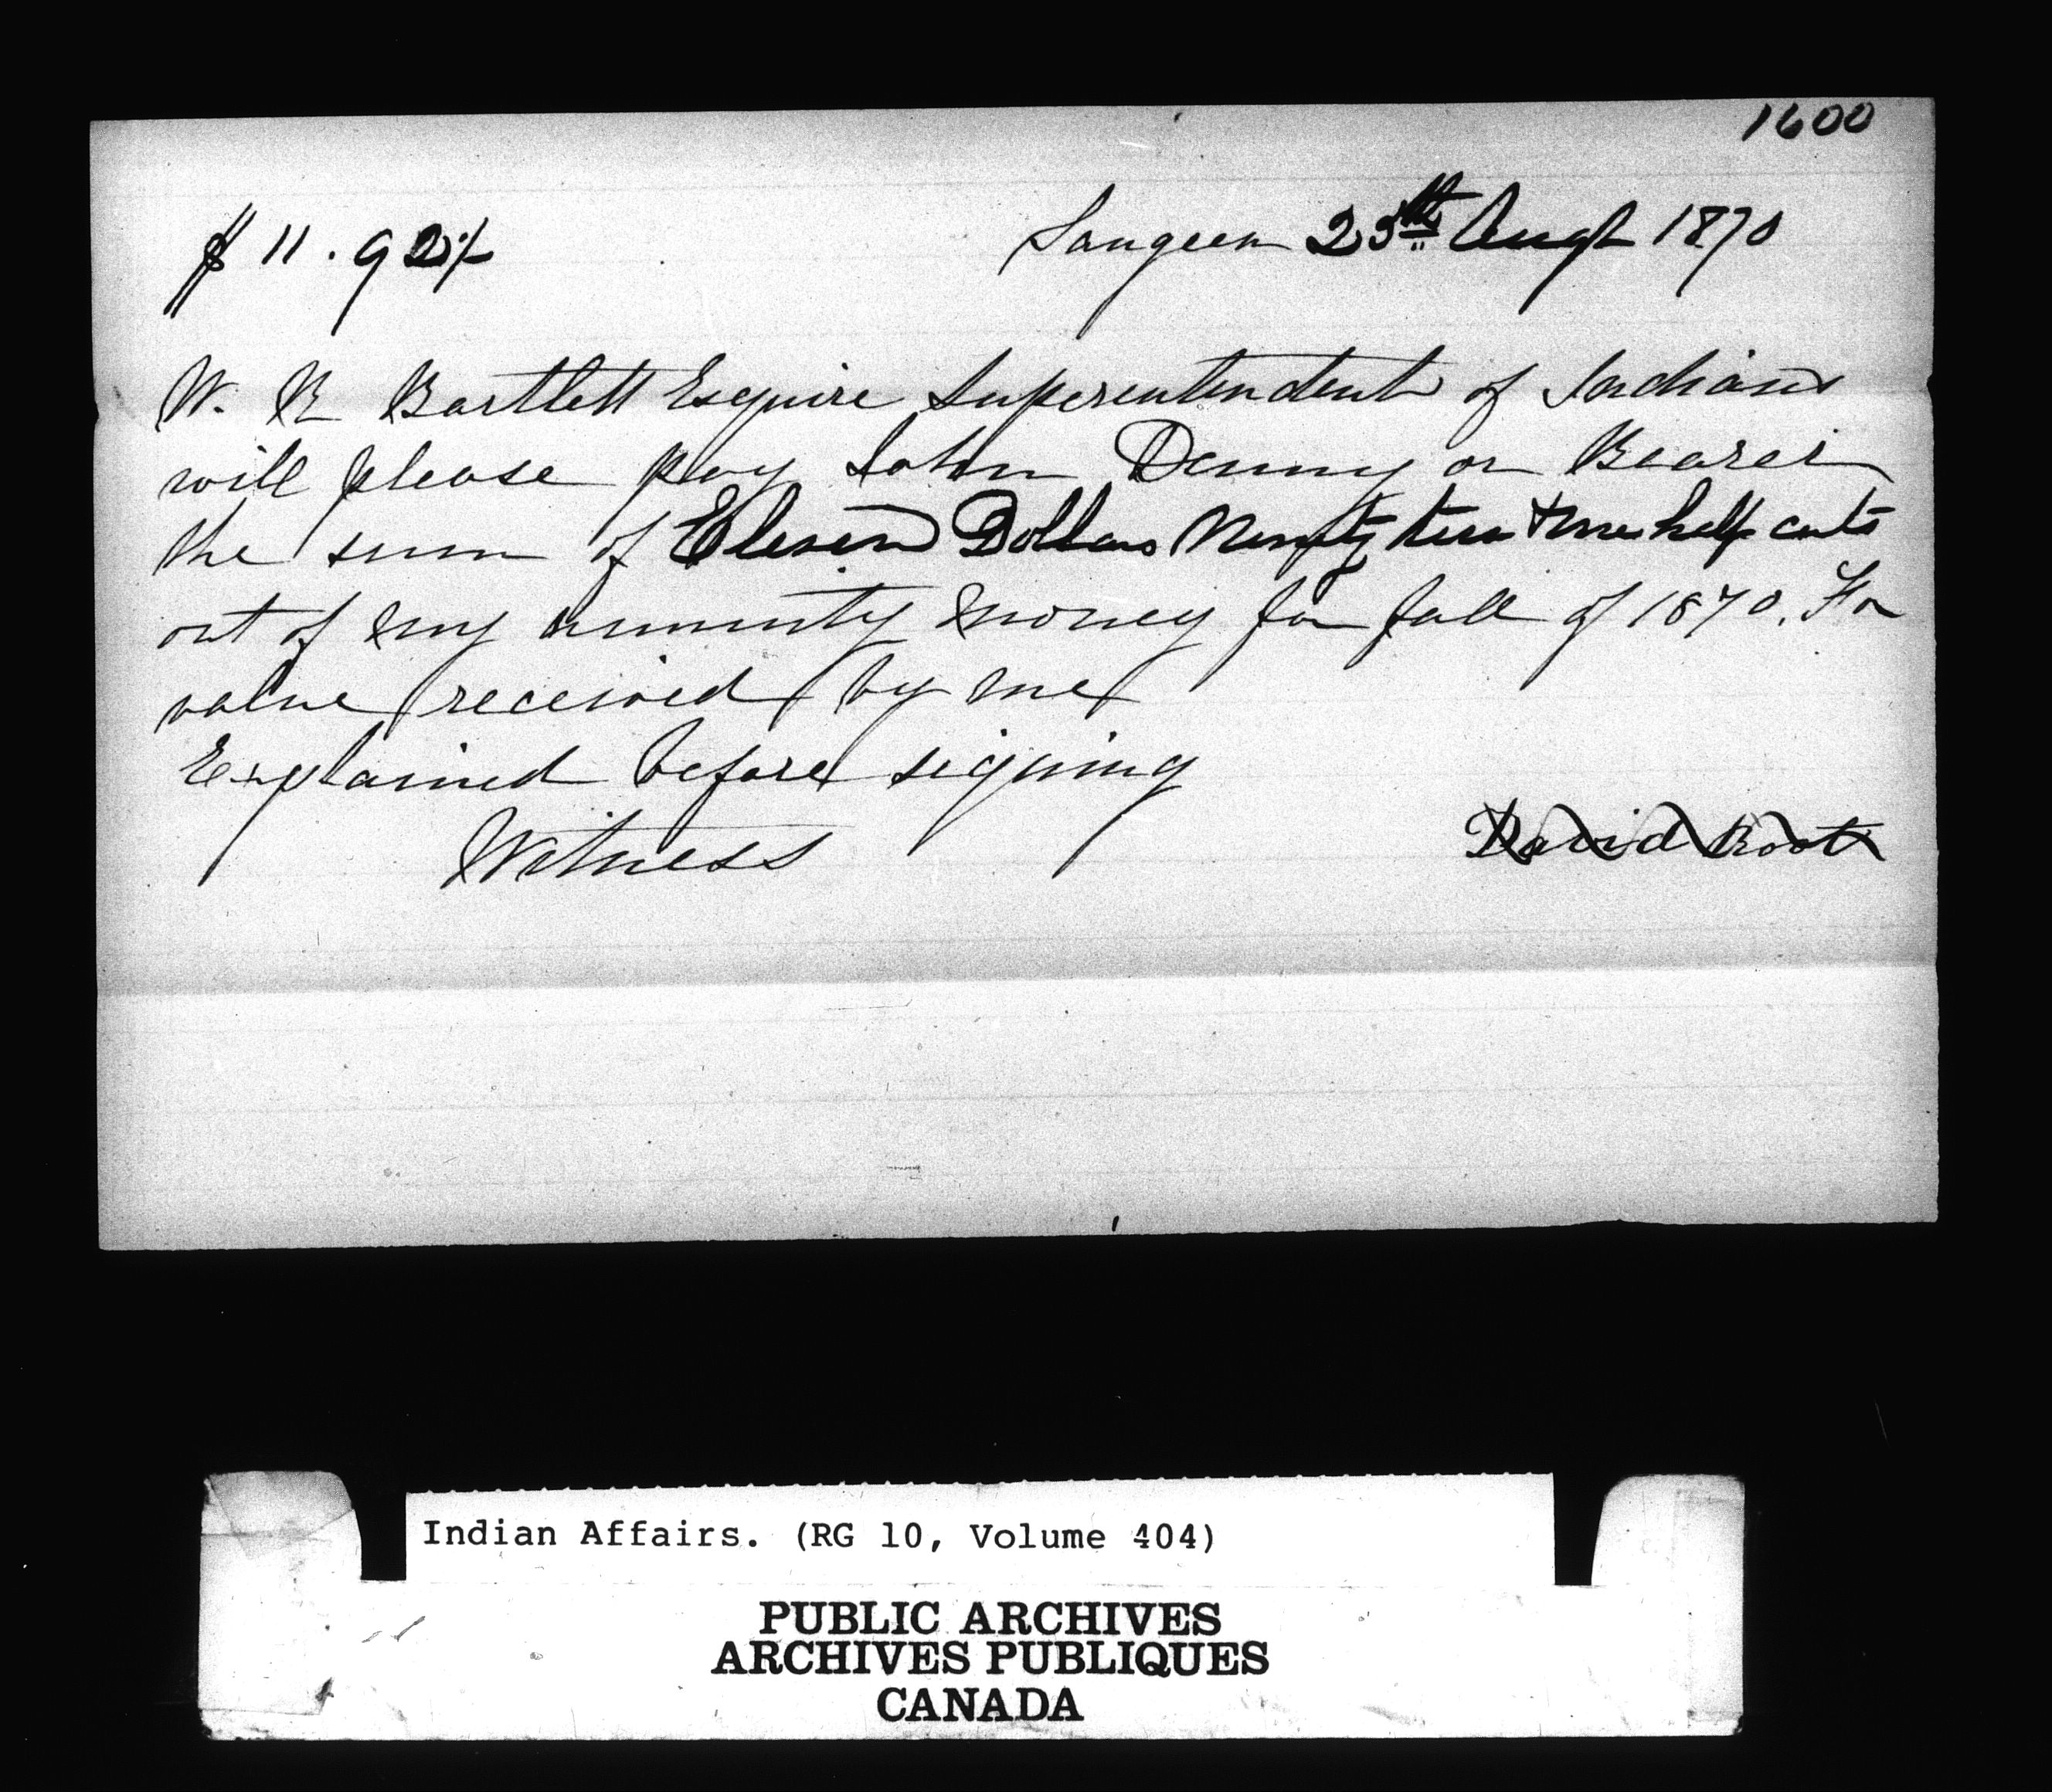 1600
$ 11.92½ Saugeen 25th Augt 1870
W. R Bartlett Esquire Superentendent of Indians
will please pay John Denny or Bearer
the sum of Eleven Dollars Ninety two & one half cents
out of my annuity money for fall of 1870. For
value received by me
Explained before signing
Witness David Root
Indian Affairs. (RG 10, Volume 404)
PUBLIC ARCHIVES
ARCHIVES PUBLIQUES
CANADA